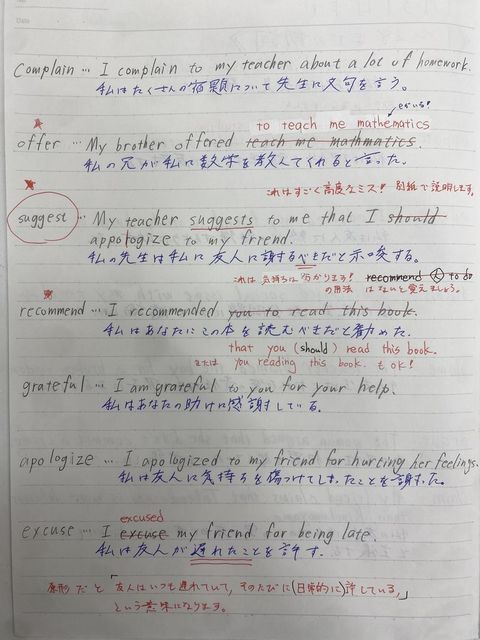 Complain … I complain to my teacher about a lot of homework.
私はたくさんの宿題について先生に文句を言う。
to teach me mathematics
offer … My brother offered teach me mathmatics.
私の兄が私に数学を教えてくれると言った。
これはすごく高度なミス! 別紙で説明します。
suggest … My teacher suggests to me that I should
appologize to my friend.
私の先生は私に友人に謝るべきだと示唆する。
これは 気持ちは分かります! recommend 人 to do
の用法 はないと覚えましょう。
recommend … I recommended you to read this book.
私はあなたにこの本を読むべきだと勧めた。
that you (should) read this book.
または you reading this book. も OK!
grateful … I am grateful to you for your help.
私はあなたの助けに感謝している。
apologize … I apologized to my friend for hurting her feelings.
私は友人に気持ちを傷つけてしまったことを謝った。
excused
excuse … I excuse my friend for being late.
私は友人が遅れたことを許す。
原形だと「友人はいつも遅れていて、そのたびに(日常的に)許している」
という意味になります。